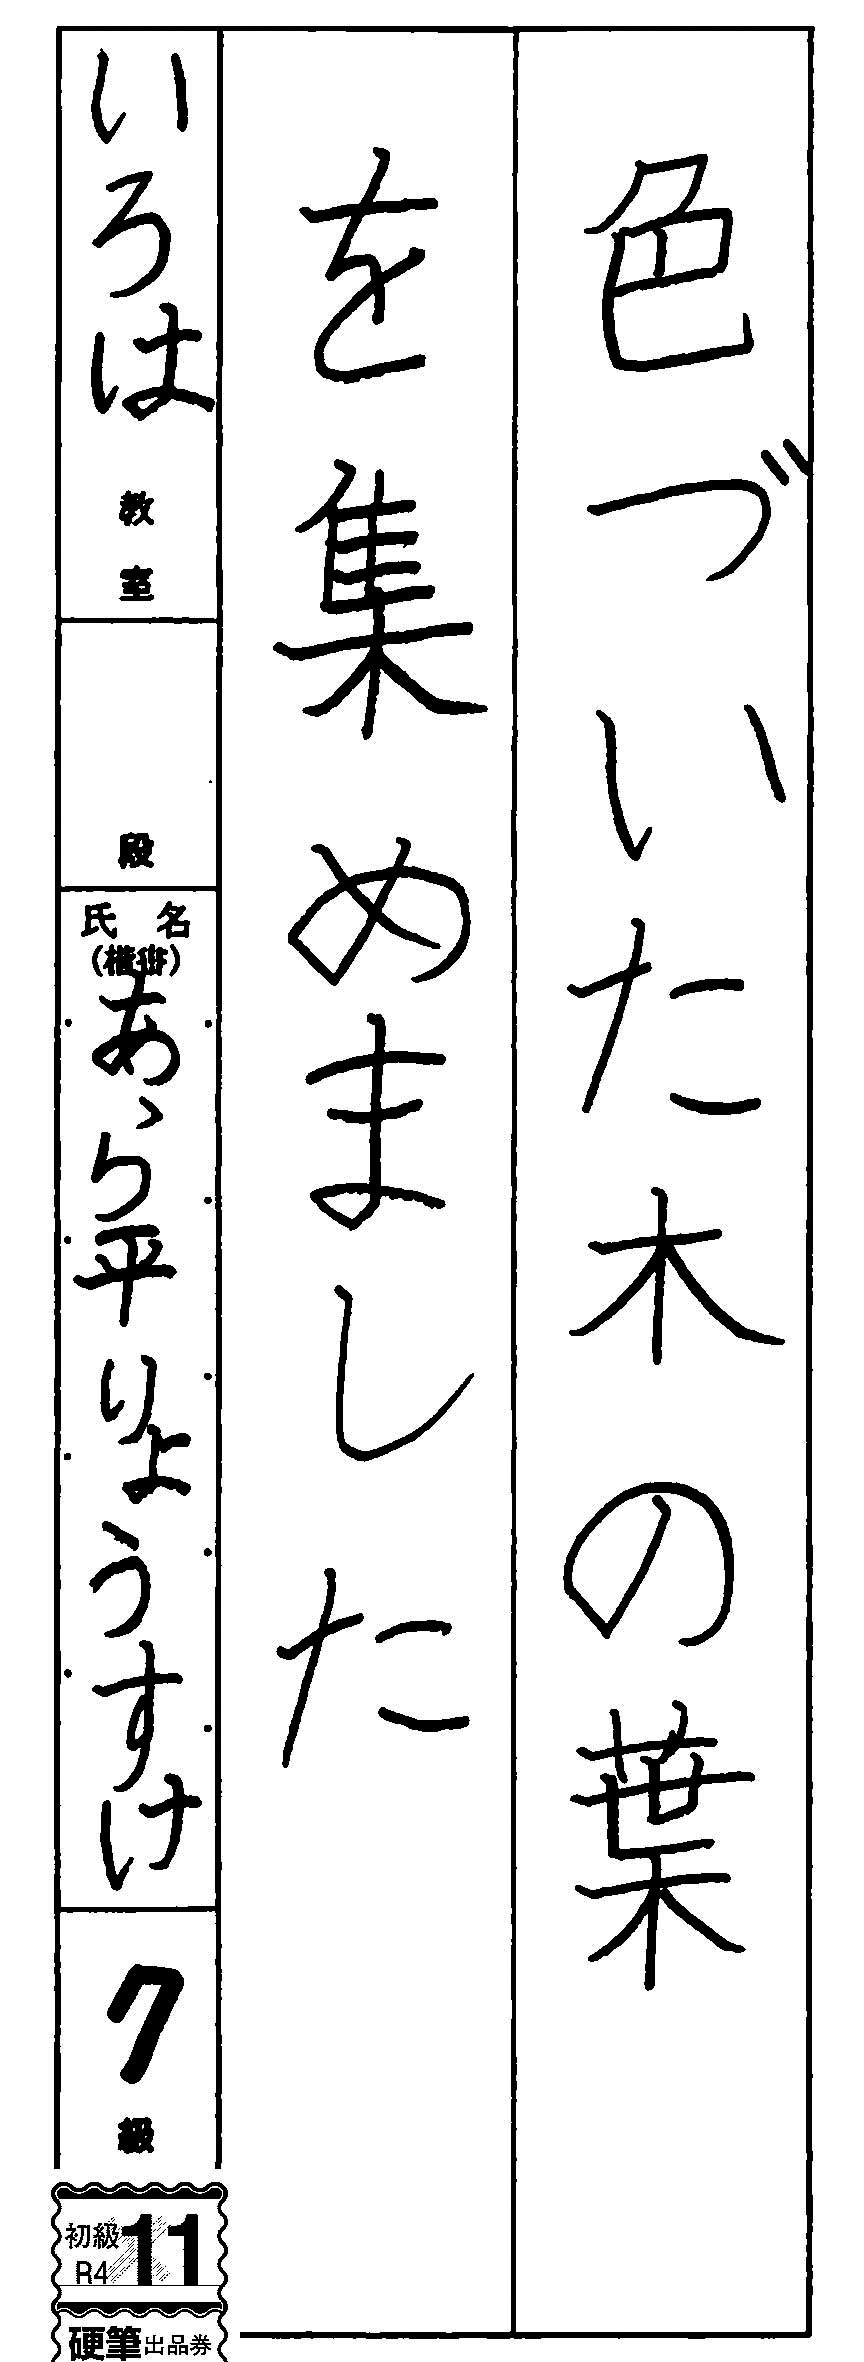 色づいた木の葉
を集めました
いろは教室
段
氏名
(楷書)
あら平りょうすけ
7級
初級
R4
11
硬筆出品券